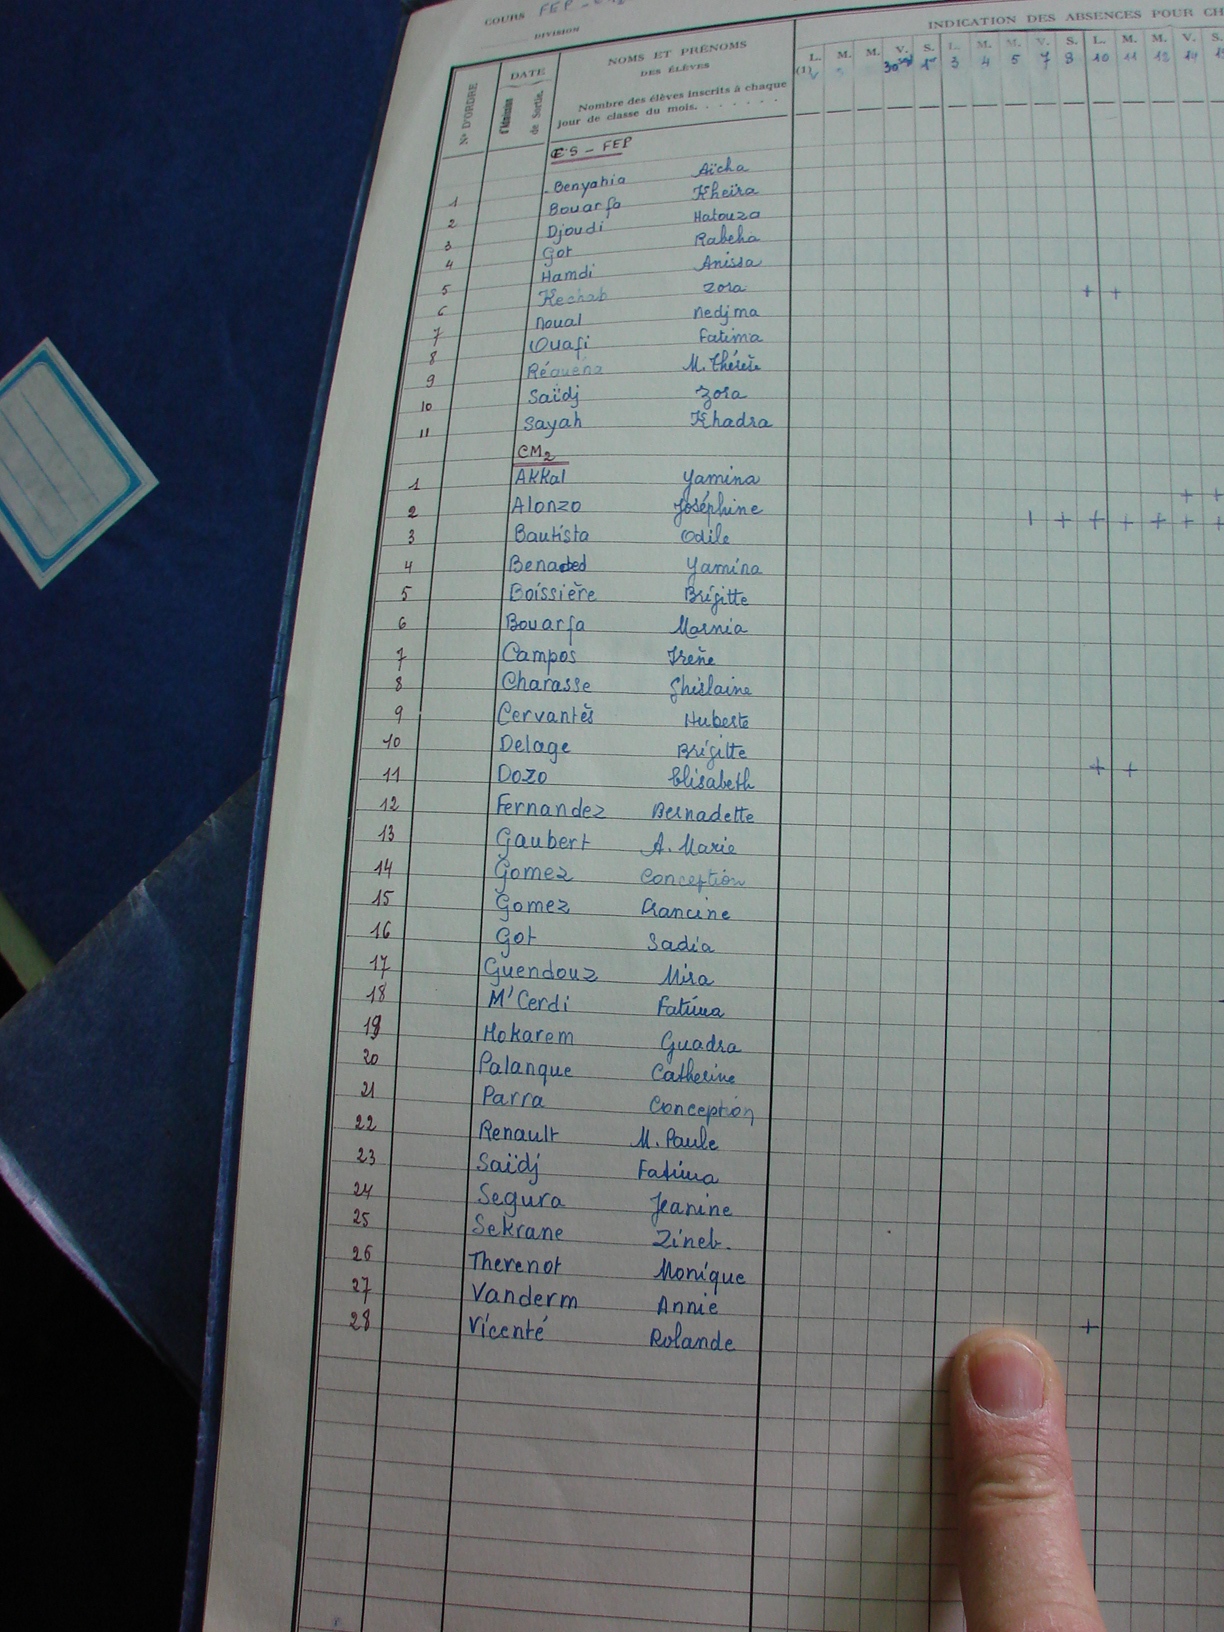 COURS FEP
DIVISION
INDICATION DES ABSENCES POUR CH
N° D'ORDRE
DATE
d'Admission
de Sortie.
NOMS ET PRÉNOMS
DES ÉLÈVES
Nombre des élèves inscrits à chaque
jour de classe du mois.
L. M. M. V. S. L. M. M. V. S. L. M. M. V. S.
(1) 30 1er 3 4 5 7 8 10 11 12 14
CS - FEP
1 Benyahia Aïcha
2 Bouarfa Kheïra
3 Djoudi Hatouza
4 Got Rabeha
5 Hamdi Anissa
6 Kechab Zora
7 Noual Nedjma
8 Ouafi Fatima
9 Réquéna M. Thérèse
10 Saïdj Zora
11 Sayah Khadra
CM2
1 Akkal Yamina
2 Alonzo Joséphine
3 Bautista Odile
4 Benabed Yamina
5 Boissière Brigitte
6 Bouarfa Marnia
7 Campos Irène
8 Charasse Ghislaine
9 Cervantès Huberte
10 Delage Brigitte
11 Dozo Elisabeth
12 Fernandez Bernadette
13 Gaubert A. Marie
14 Gomez Conception
15 Gomez Francine
16 Got Sadia
17 Guendouz Mira
18 M'Cerdi Fatima
19 Mokarem Guadra
20 Palanque Catherine
21 Parra Conception
22 Renault M. Paule
23 Saïdj Fatima
24 Segura Jeanine
25 Sekrane Zineb.
26 Thevenot Monique
27 Vanderm Annie
28 Vicenté Rolande